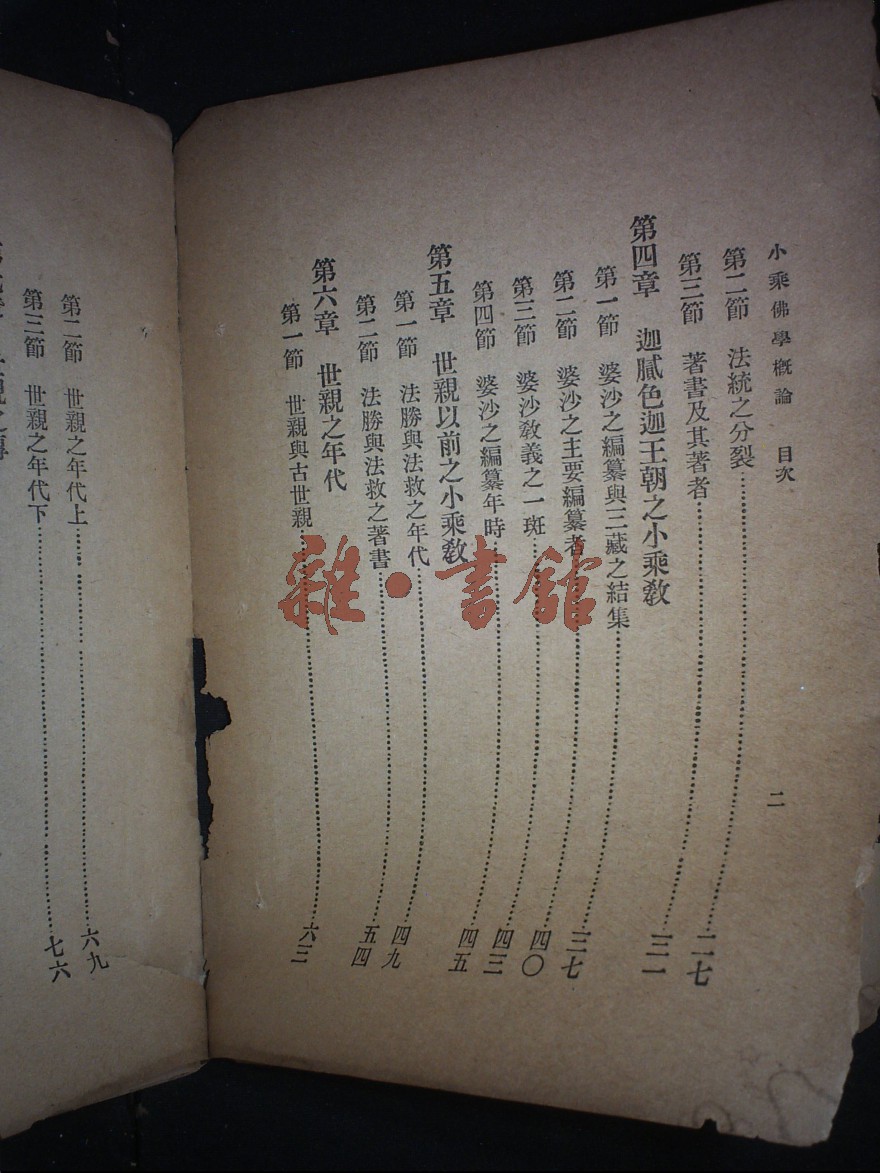 小乘佛學槪論 目次 二
第二節 法統之分裂……二七
第三節 著書及其著者……三一
第四章 迦膩色迦王朝之小乘敎
第一節 婆沙之編纂與三藏之結集……三七
第二節 婆沙之主要編纂者……四〇
第三節 婆沙敎義之一斑……四三
第四節 婆沙之編纂年時……四五
第五章 世親以前之小乘敎
第一節 法勝與法救之年代……四九
第二節 法勝與法救之著書……五四
第六章 世親之年代
第一節 世親與古世親……六三
第二節 世親之年代上……六九
第三節 世親之年代下……七六
雜·書館